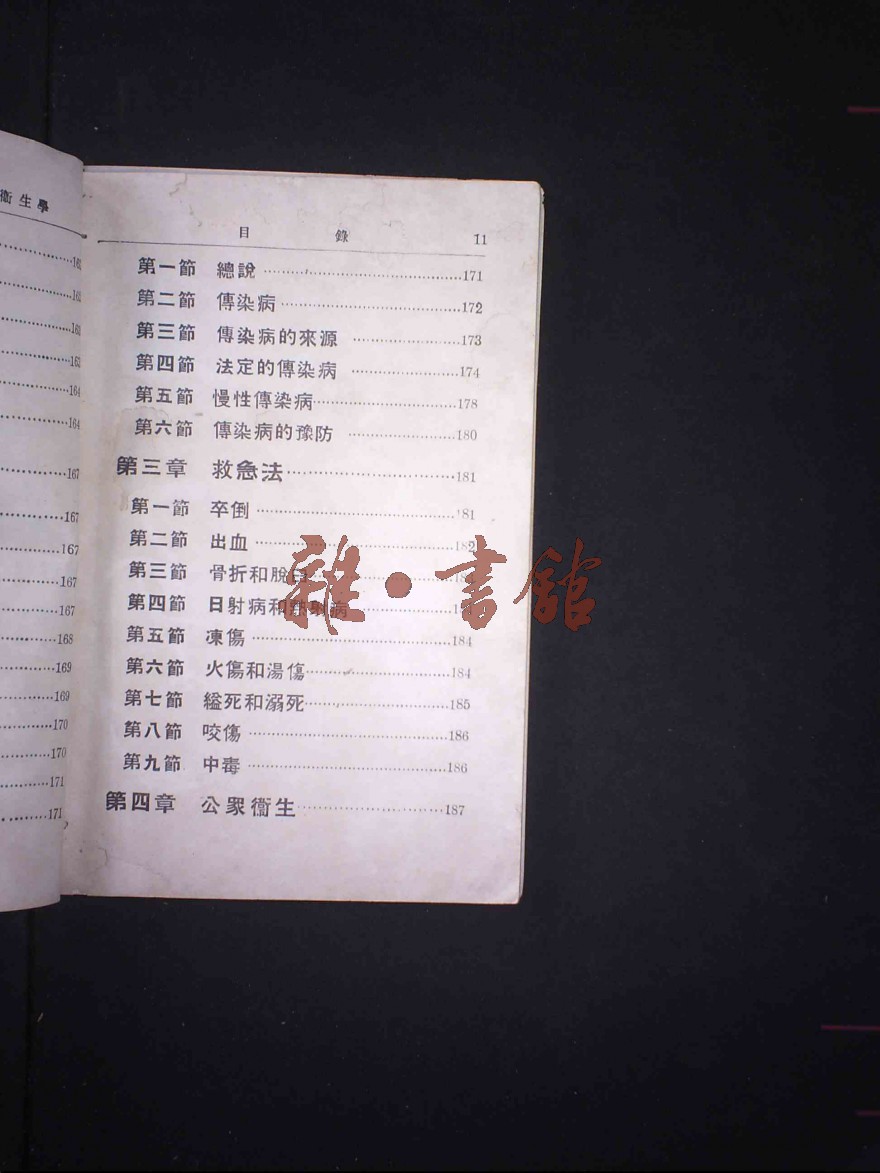 衞生學
162
162
160
163
164
164
167
167
167
167
167
168
169
169
170
170
171
171
目錄 11
第一節 總說 171
第二節 傳染病 172
第三節 傳染病的來源 173
第四節 法定的傳染病 174
第五節 慢性傳染病 178
第六節 傳染病的豫防 180
第三章 救急法 181
第一節 卒倒 181
第二節 出血 182
第三節 骨折和脫臼
第四節 日射病和熱射病
第五節 凍傷 184
第六節 火傷和湯傷 184
第七節 縊死和溺死 185
第八節 咬傷 186
第九節 中毒 186
第四章 公眾衞生 187
雜·書館